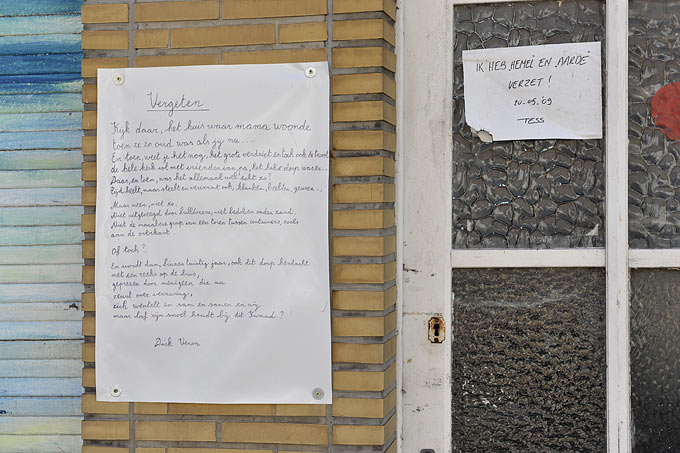 Vergeten
Kijk daar, het huis waar mama woonde
toen ze zo oud was als jij nu ....
En toen, weet je het nog, het grote verdriet en toch ook de troost
de hele kerk vol met vrienden van pa, het halve dorp waren ...
Daar, en toen, was het allemaal wel echt zo?
Tijd heelt, maar steelt en vervormt ook, klanken, beelden, geuren ..,
Maar neen, niet zo,
Niet uitgeveegd door bulldozers, niet bedolven onder zand,
Niet de macabere grap van een toren tussen containers, zoals
aan de overkant.
Of toch?
En wordt dan, binnen twintig jaar, ook dit dorp herdacht
met een reeks op de buis,
geprezen door menigten die nu
zwijgt over
zich wentelt in sam en samen en wij
maar laf zijn smoel houdt bij dit kwaad?
Dirk Veron
IK HEB HEMEL EN AARDE
VERZET !
20.05.'09
TESS